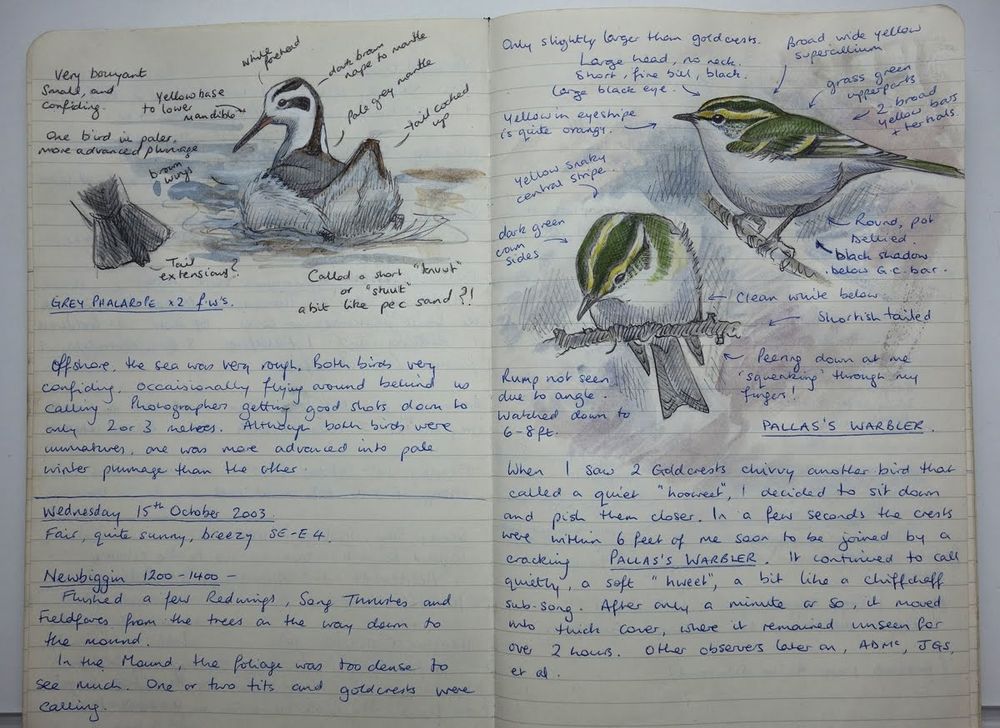 Very bouyant
Small, and
confiding.
One bird in paler,
more advanced plumage
white forehead
dark brown
nape to mantle
Yellow base
to lower
mandible
Pale grey mantle
tail cocked
up
brown
wings
Tail
extensions?
Called a short "knuut"
or "stuut"
a bit like pec sand?!
GREY PHALAROPE x2 fw's.
Offshore, the sea was very rough. Both birds very
confiding. Occaisionally flying around behind us
calling. Photographers getting good shots down to
only 2 or 3 metres. Although both birds were
immatures, one was more advanced into pale
winter plumage than the other.
Wednesday 15th October 2003.
Fair, quite sunny, breezy SE-E 4.
Newbiggin 1200-1400 -
Flushed a few Redwings, Song Thrushes and
Fieldfares from the trees on the way down to
the mound.
In the Mound, the foliage was too dense to
see much. One or two tits and goldcrests were
calling.
Only slightly larger than goldcrests.
Large head, no neck.
Short, fine bill, black.
Large black eye.
Broad wide yellow
supercillium
grass green
upperparts
2 broad
yellow bars
+ tertials.
Yellow in eyestripe
is quite orangy.
Yellow snaky
central stripe.
dark green
crown
sides
Round, pot
bellied.
black shadow
below G.C. bar.
Clean white below
Shortish tailed
Peering down at me
'squeaking' through my
fingers!
Rump not seen
due to angle.
Watched down to
6-8ft.
PALLAS'S WARBLER.
When I saw 2 Goldcrests chivvy another bird that
called a quiet "hooweet", I decided to sit down
and pish them closer. In a few seconds the crests
were within 6 feet of me soon to be joined by a
cracking PALLAS'S WARBLER. It continued to call
quietly, a soft "hweet", a bit like a chiffchaff
sub-song. After only a minute or so, it moved
into thick cover, where it remained unseen for
over 2 hours. Other observers later on, ADMc, JGS,
et al.